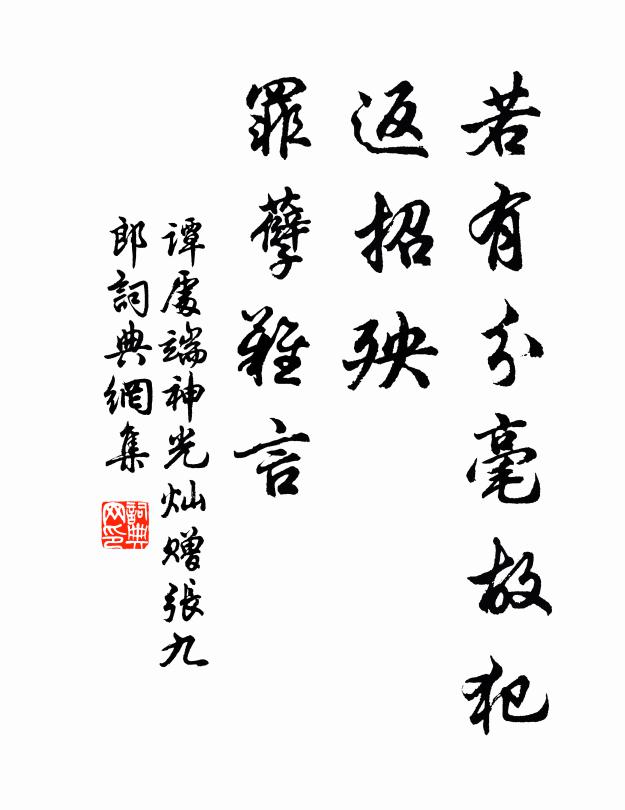 若有分毫故犯
返招殃
罪孽難言
谭處端神光灿赠張九
郎詞典網集
詞典网印